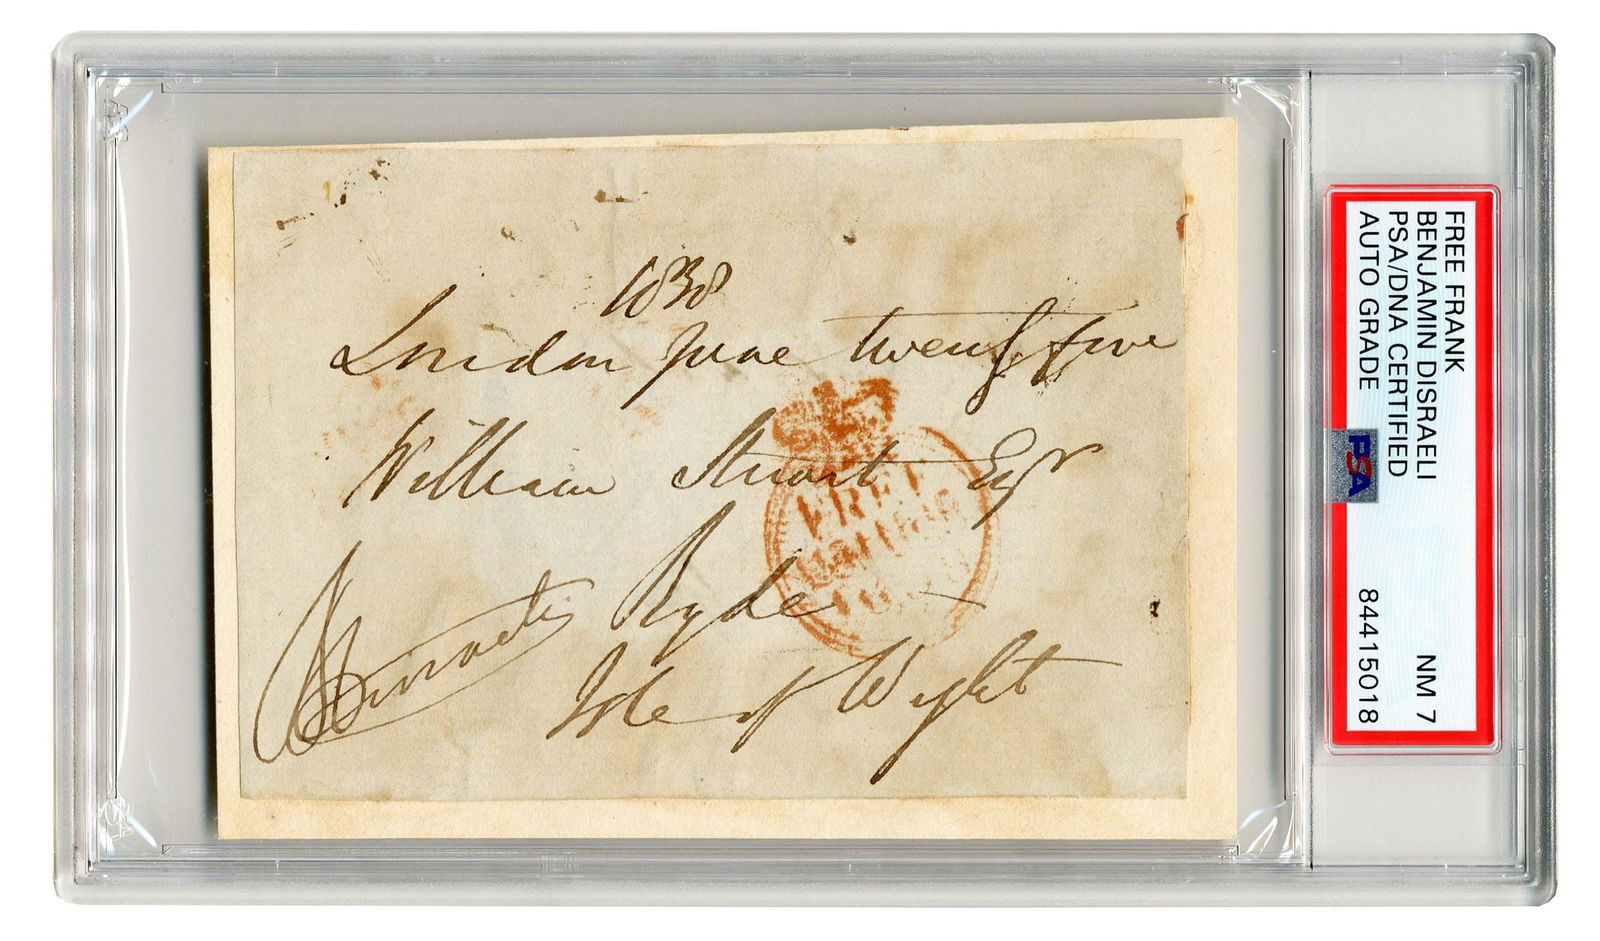 1838
London June twenty five
William Stuart Esqr
Ryde
Isle of Wight
BDisraeli
FREE
FREE FRANK
BENJAMIN DISRAELI
PSA/DNA CERTIFIED
AUTO GRADE NM 7
84415018
PSA